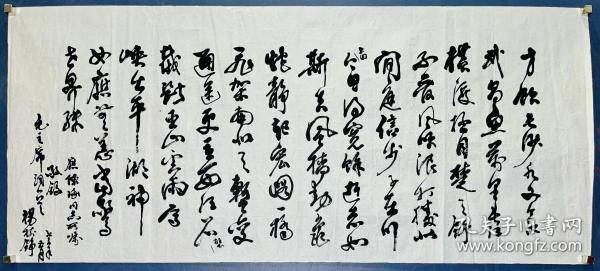 才饮长沙水又食
武昌鱼万里长江
横渡极目楚天舒
不管风吹浪打胜似
闲庭信步子在川
曰得宽馀逝者如
斯夫风樯动龟
蛇静起宏图桥
飞架南北天堑变
通途更立西江石壁
截断巫山云雨高
峡出平湖神
女应无恙当惊
世界殊
同志所嘱
敬录
毛主席词一首
孔夫子旧书网
kongfz.com